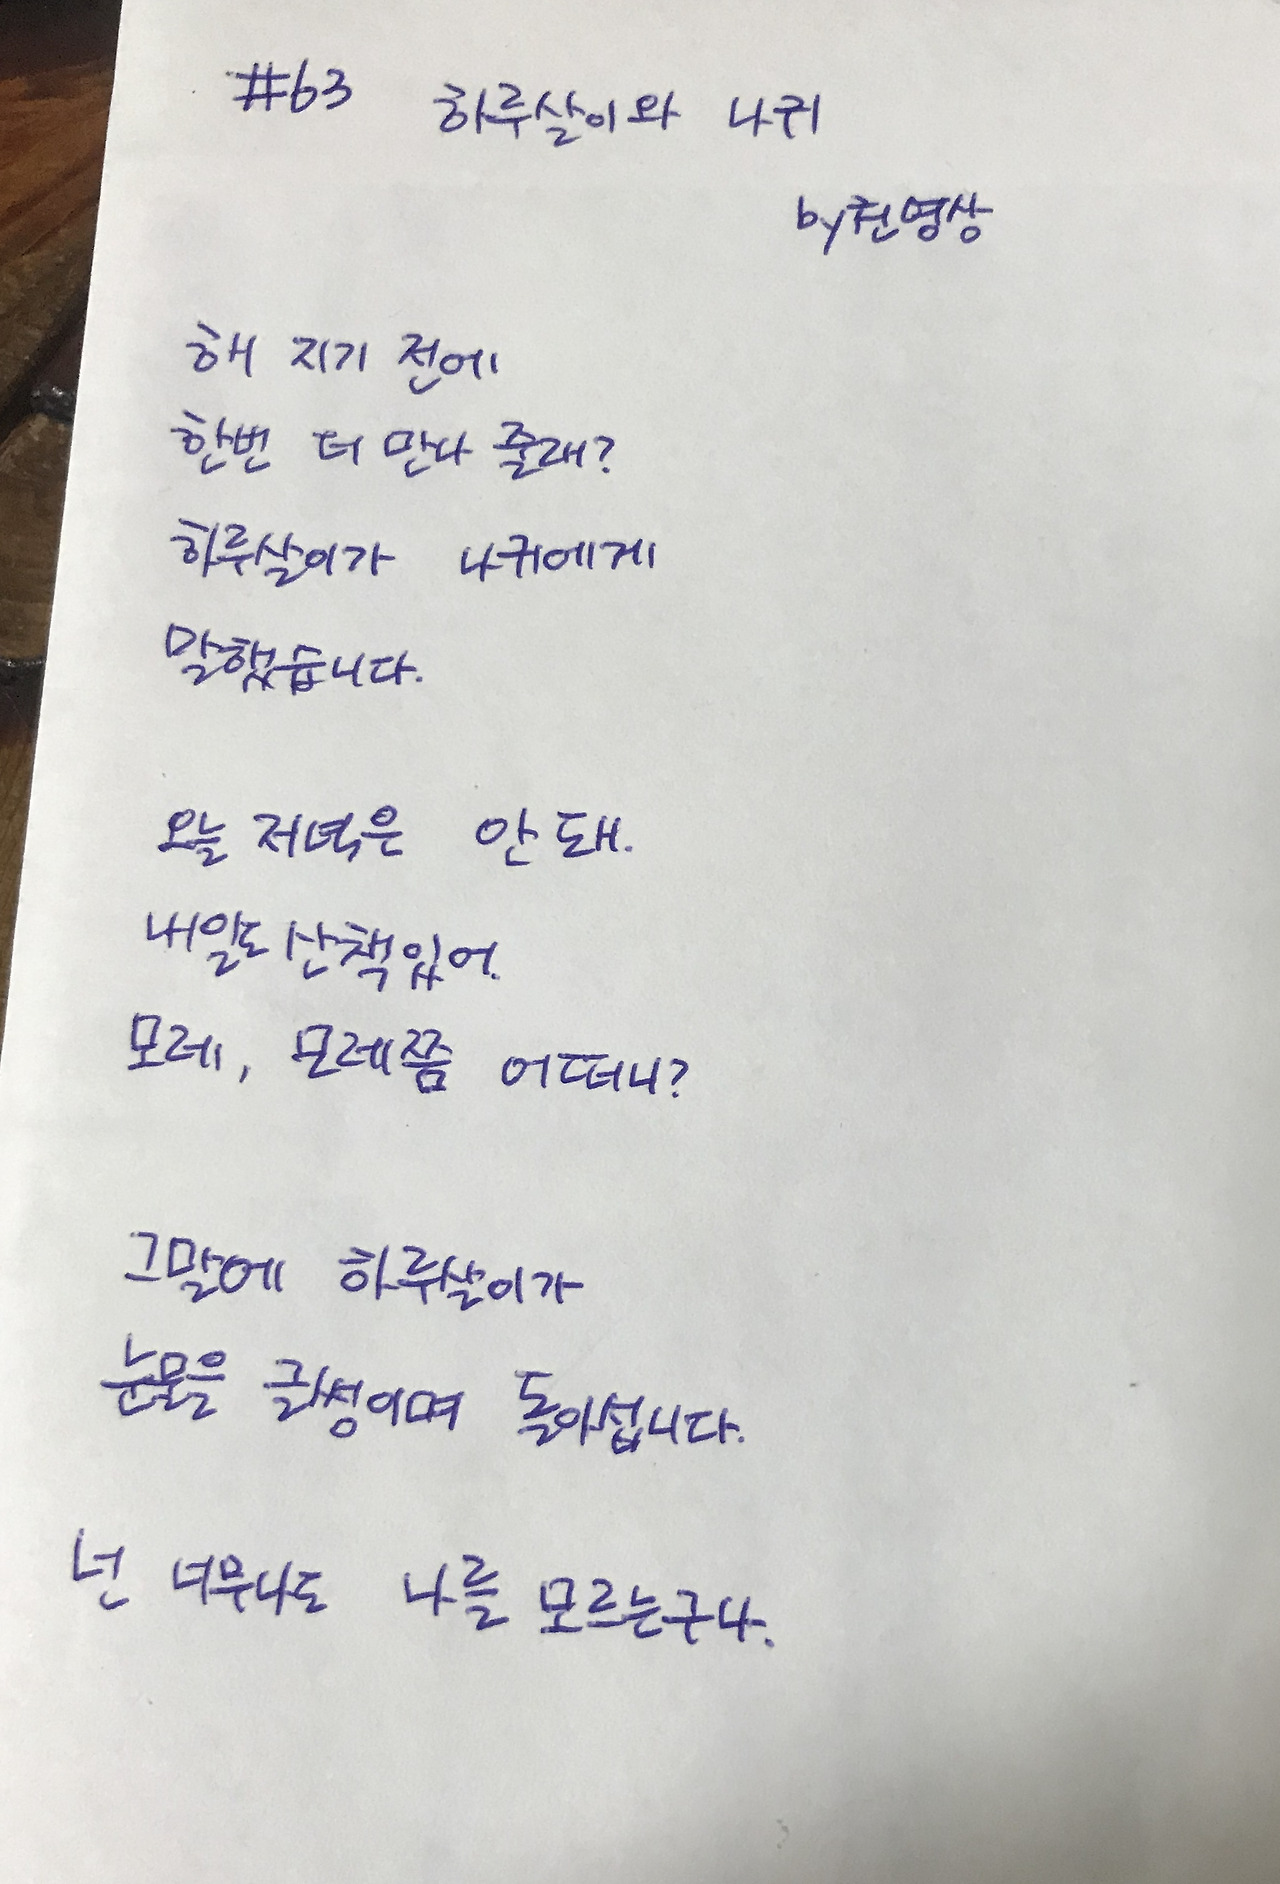 #63 하루살이와 나귀
by 권영상
해 지기 전에
한번 더 만나 줄래?
하루살이가 나귀에게
말했습니다.
오늘 저녁은 안돼.
내일도 산책있어.
모레, 모레쯤 어떠니?
그말에 하루살이가
눈물을 글썽이며 돌아섭니다.
넌 너무나도 나를 모르는구나.